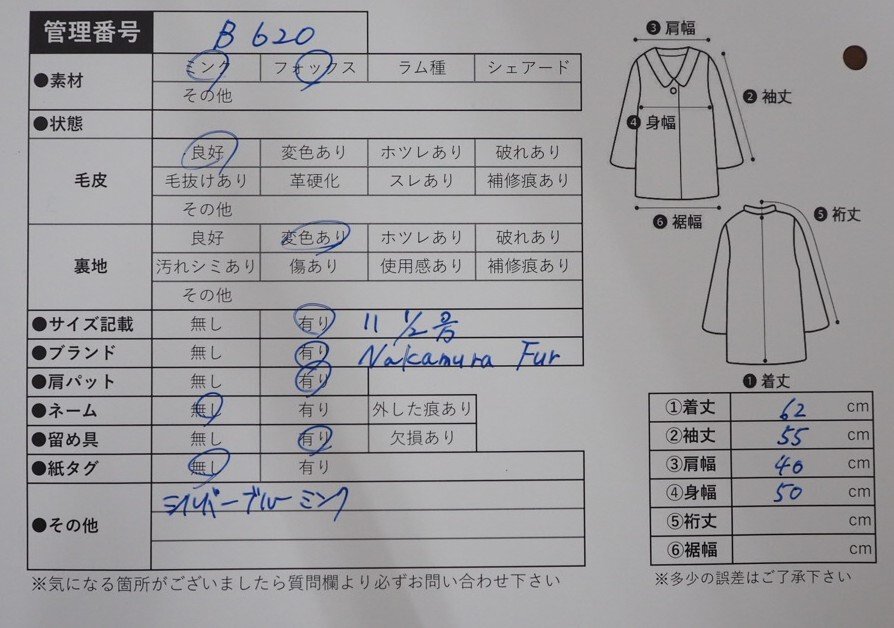 管理番号 B 620
●素材 ミンク フォックス ラム種 シェアード
その他
●状態
毛皮 良好 変色あり ホツレあり 破れあり
毛抜けあり 革硬化 スレあり 補修痕あり
その他
裏地 良好 変色あり ホツレあり 破れあり
汚れシミあり 傷あり 使用感あり 補修痕あり
その他
●サイズ記載 無し 有り 11 1/2号
●ブランド 無し 有り Nakamura Fur
●肩パット 無し 有り
●ネーム 無し 有り 外した痕あり
●留め具 無し 有り 欠損あり
●紙タグ 無し 有り
●その他 シルバーブルーミンク
※気になる箇所がございましたら質問欄より必ずお問い合わせ下さい
❸肩幅
❷袖丈
❹身幅
❻裾幅
❺裄丈
❶着丈
①着丈 62 cm
②袖丈 55 cm
③肩幅 40 cm
④身幅 50 cm
⑤裄丈 cm
⑥裾幅 cm
※多少の誤差はご了承下さい